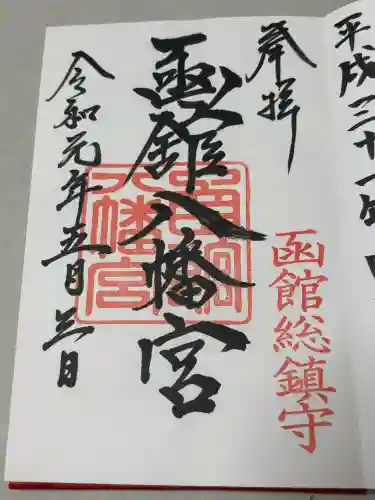 平成三十一年
奉拝
函館総鎮守
函館八幡宮
令和元年五月三日